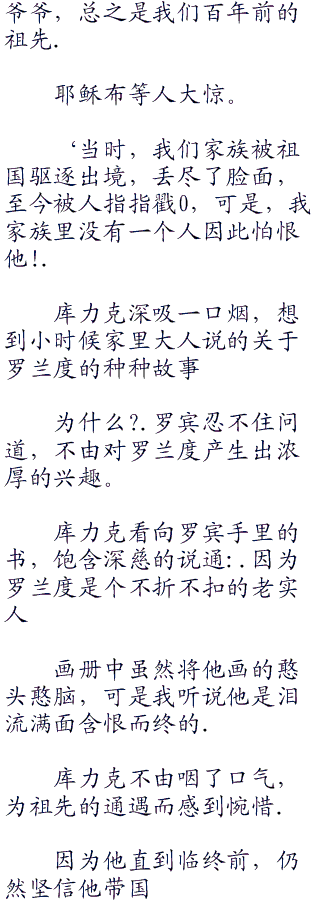 爷爷，总之是我们百年前的
祖先.
耶稣布等人大惊。
‘当时，我们家族被祖
国驱逐出境，丢尽了脸面，
至今被人指指戳0，可是，我
家族里没有一个人因此怕恨
他!.
库力克深吸一口烟，想
到小时候家里大人说的关于
罗兰度的种种故事
为什么?.罗宾忍不住问
道，不由对罗兰度产生出浓
厚的兴趣。
库力克看向罗宾手里的
书，饱含深慈的说通:.因为
罗兰度是个不折不扣的老实
人
画册中虽然将他画的憨
头憨脑，可是我听说他是泪
流满面含恨而终的.
库力克不由咽了口气，
为祖先的通遇而感到惋惜.
因为他直到临终前，仍
然坚信他带国